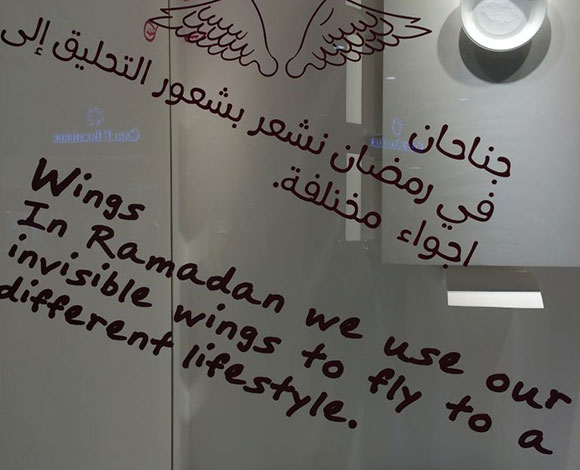 جناحان
في رمضان نشعر بشعور التحليق إلى
اجواء مختلفة.
Wings
In Ramadan we use our
invisible wings to fly to a
different lifestyle.
CARL F. BUCHERER